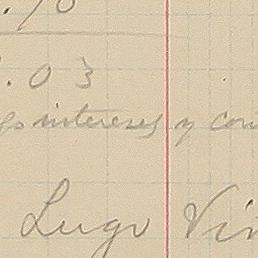 .03
intereses y con
Lugo Vin